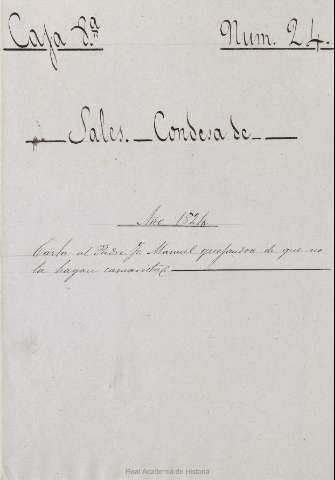 Caja 8.ª Num. 24.
Sales. Condesa de
Año 1824
Carta al Padre Fr. Manuel quejandose de que no
la hagan camarista
Real Academia de Historia